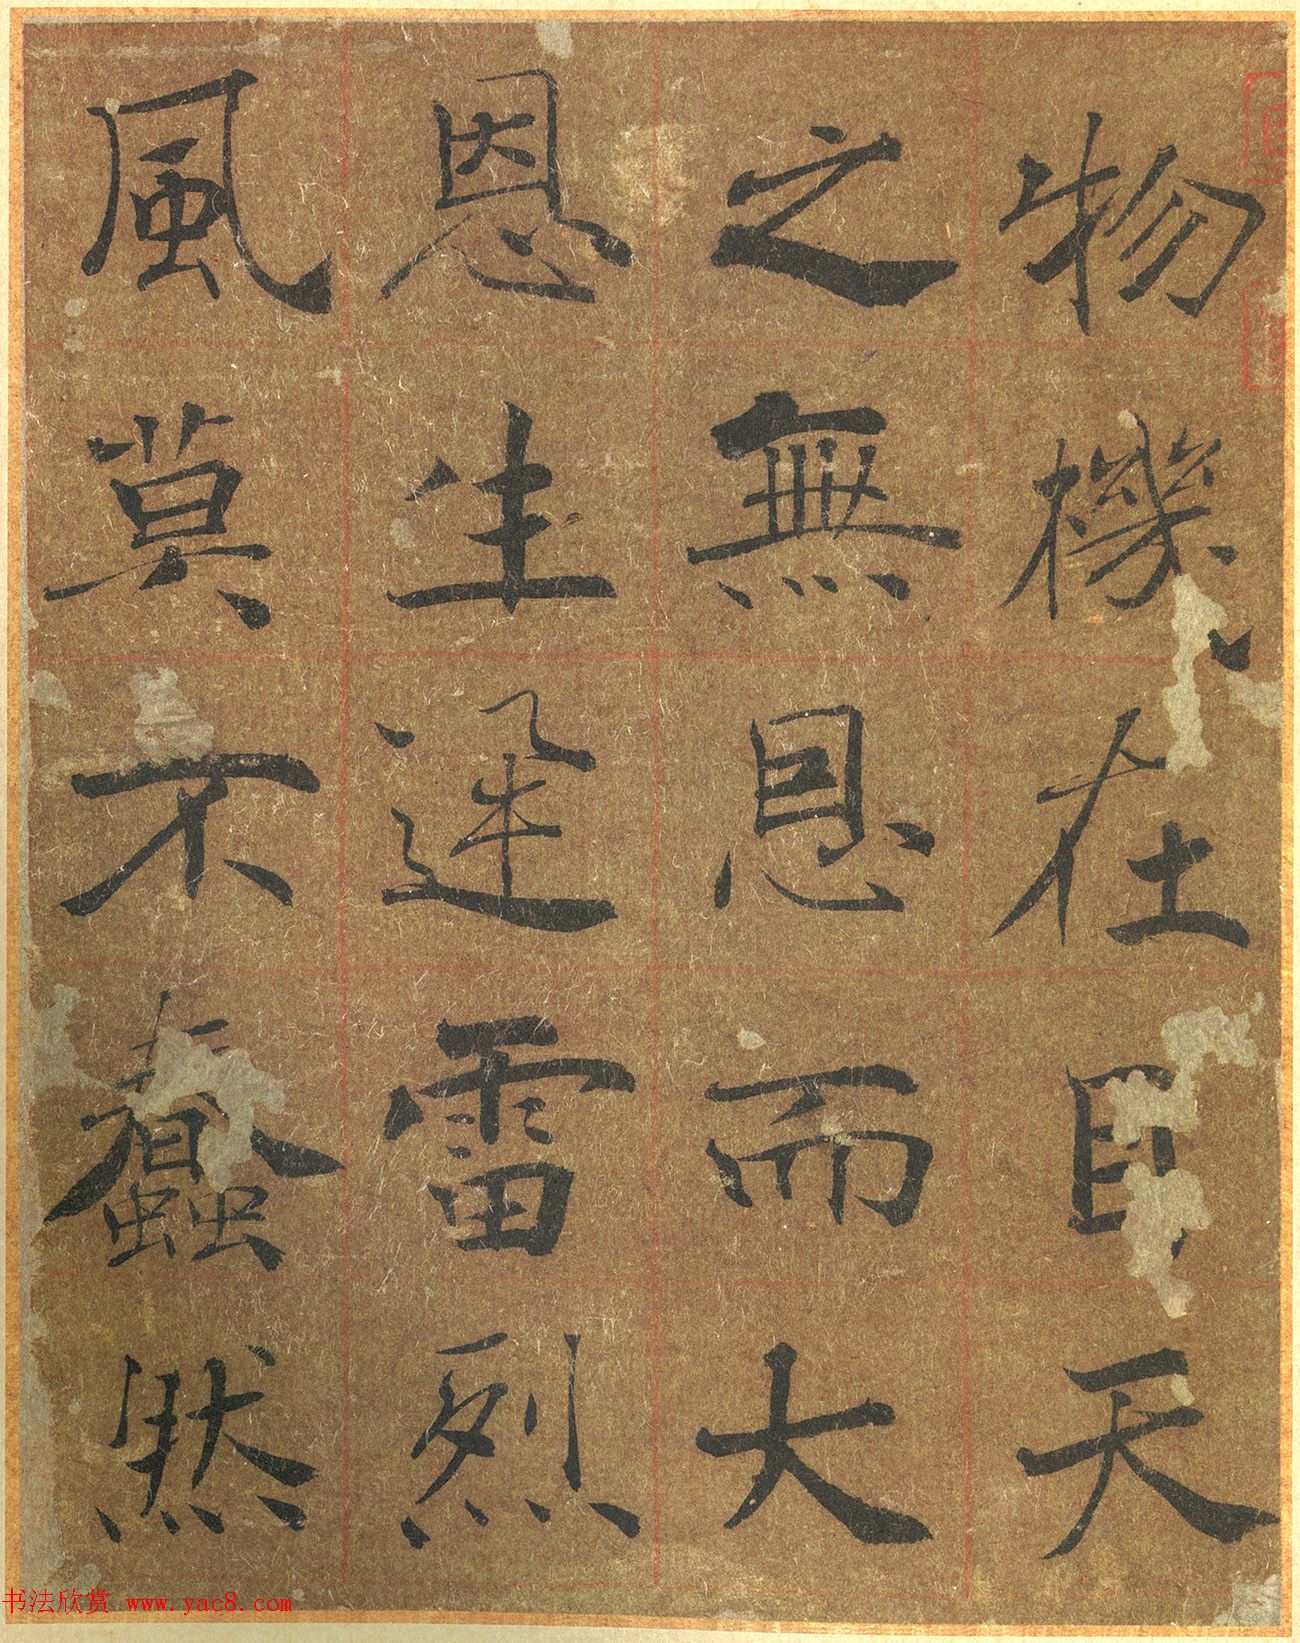 物機在目天
之無恩而大
恩生迅雷烈
風莫不蠢然
书法欣赏 www.yac8.com